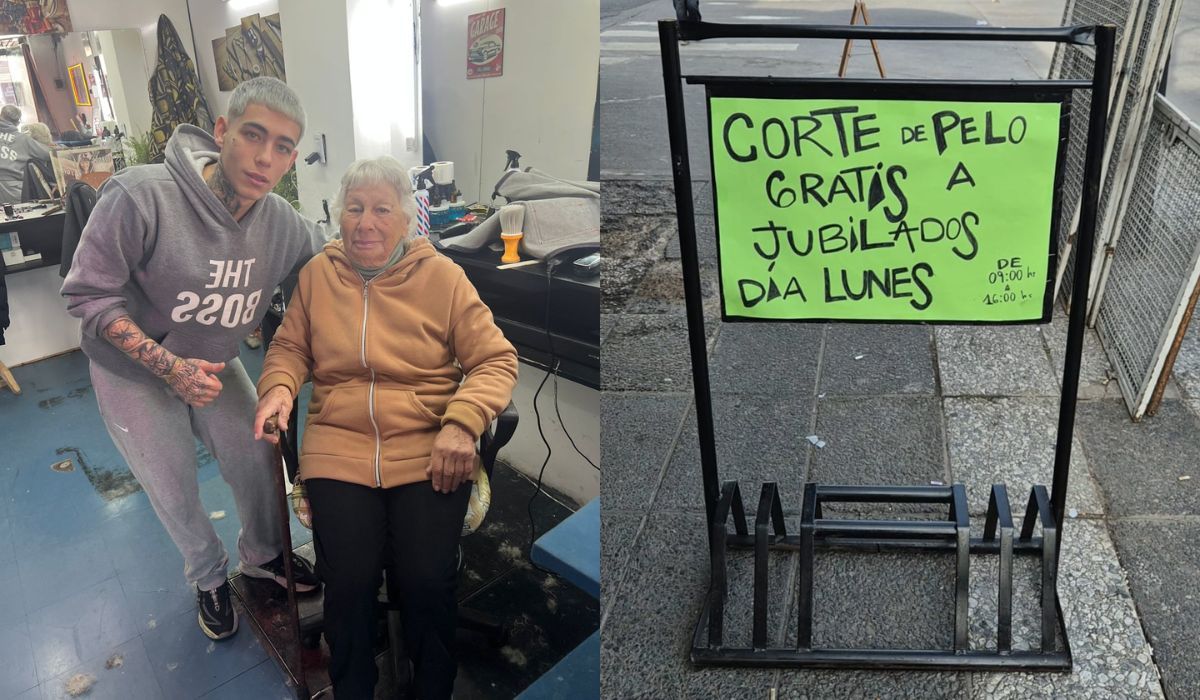 GARAGE
THE
BOSS
CORTE DE PELO
GRATIS A
JUBILADOS
DÍA LUNES
DE
09:00 hs
A
16:00 hs